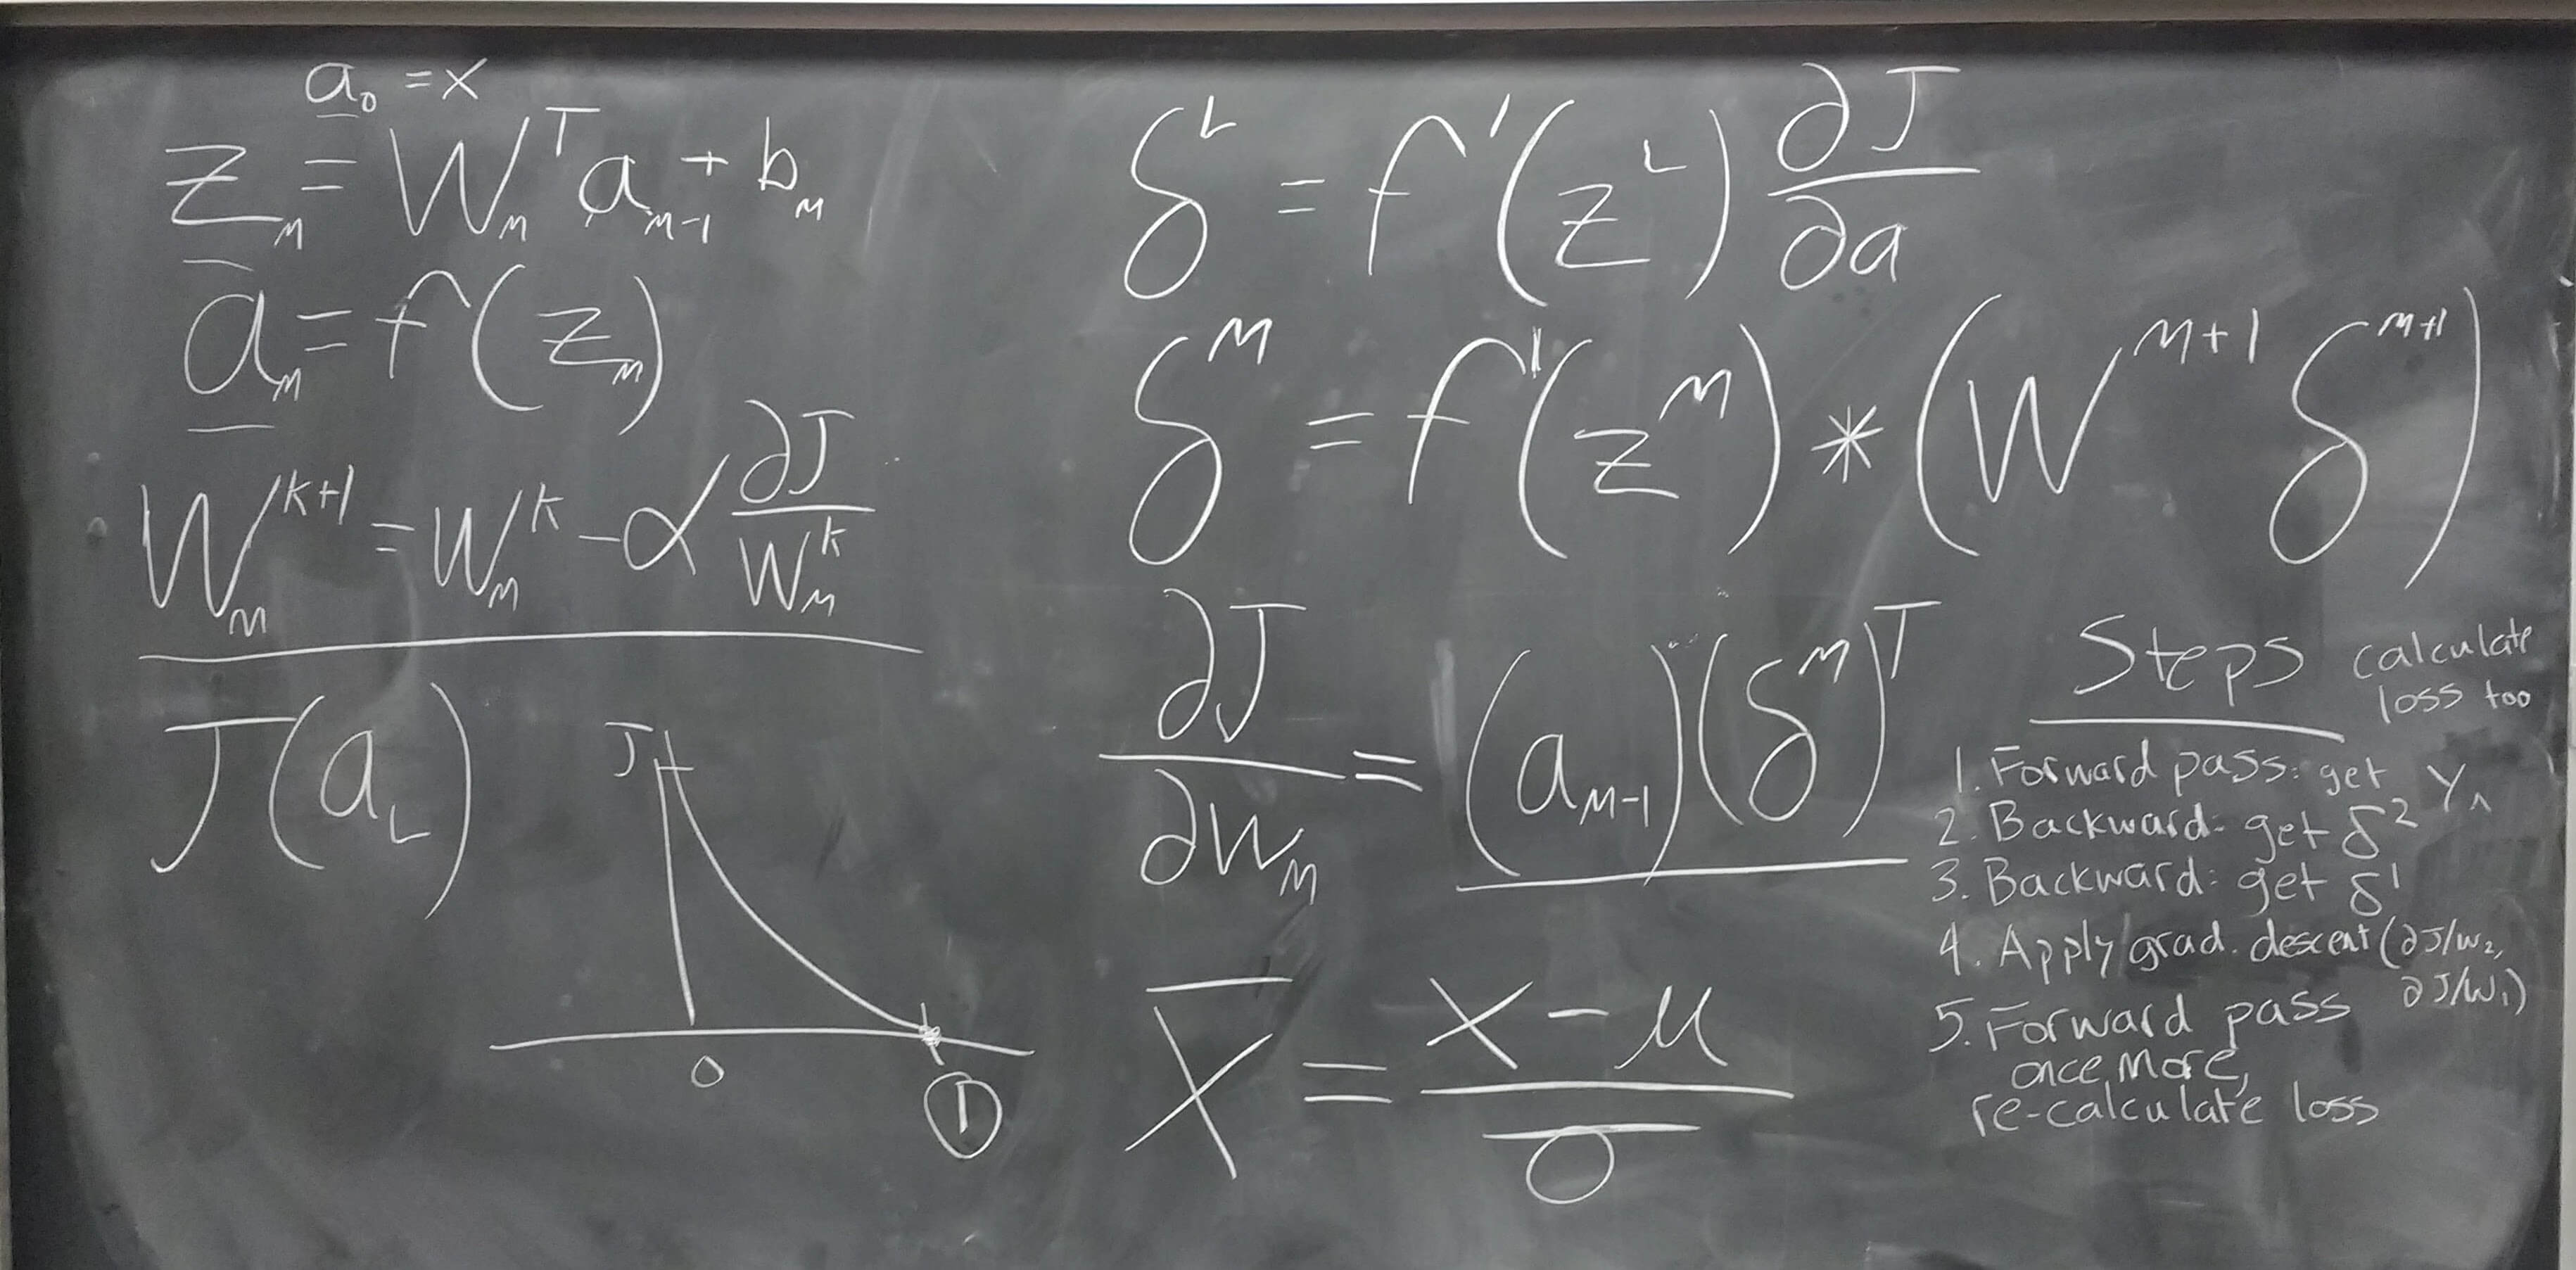 a₀ = x
z_m = W_m^T a_{m-1} + b_m
a_m = f(z_m)
W_m^{k+1} = W_m^k - α ∂J/W_m^k
J(a_L)
J
0
1
δ^L = f'(z^L) ∂J/∂a
δ^M = f'(z^M) * (W^{M+1} δ^{M+1})
∂J/∂W_M = (a_{M-1})(δ^M)^T
X̄ = (x - μ)/σ
Steps
calculate
loss too
1. Forward pass: get Y^
2. Backward: get δ²
3. Backward: get δ¹
4. Apply grad. descent (∂J/W₂,
∂J/W₁)
5. Forward pass
once more,
re-calculate loss